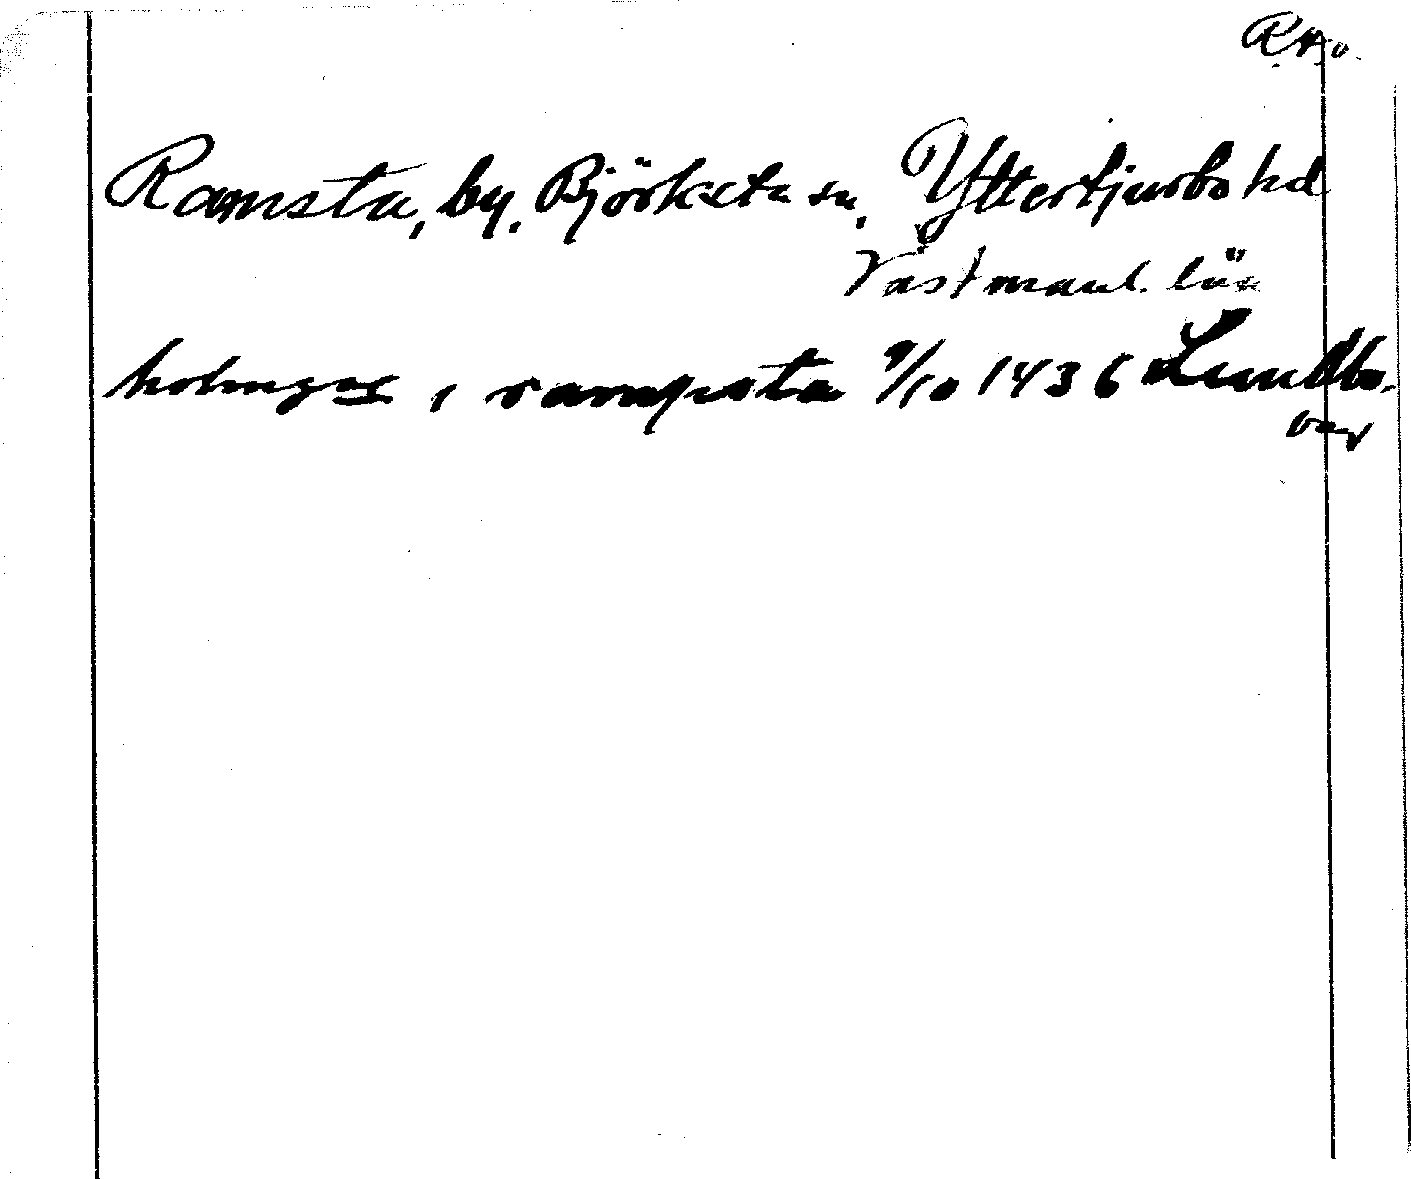 R.A.o.
Ramsta, by. Björksta sn, Yttertjurbo hd
Västmanl. län
holmger i rampsta 9/10 1436 Lundbo.